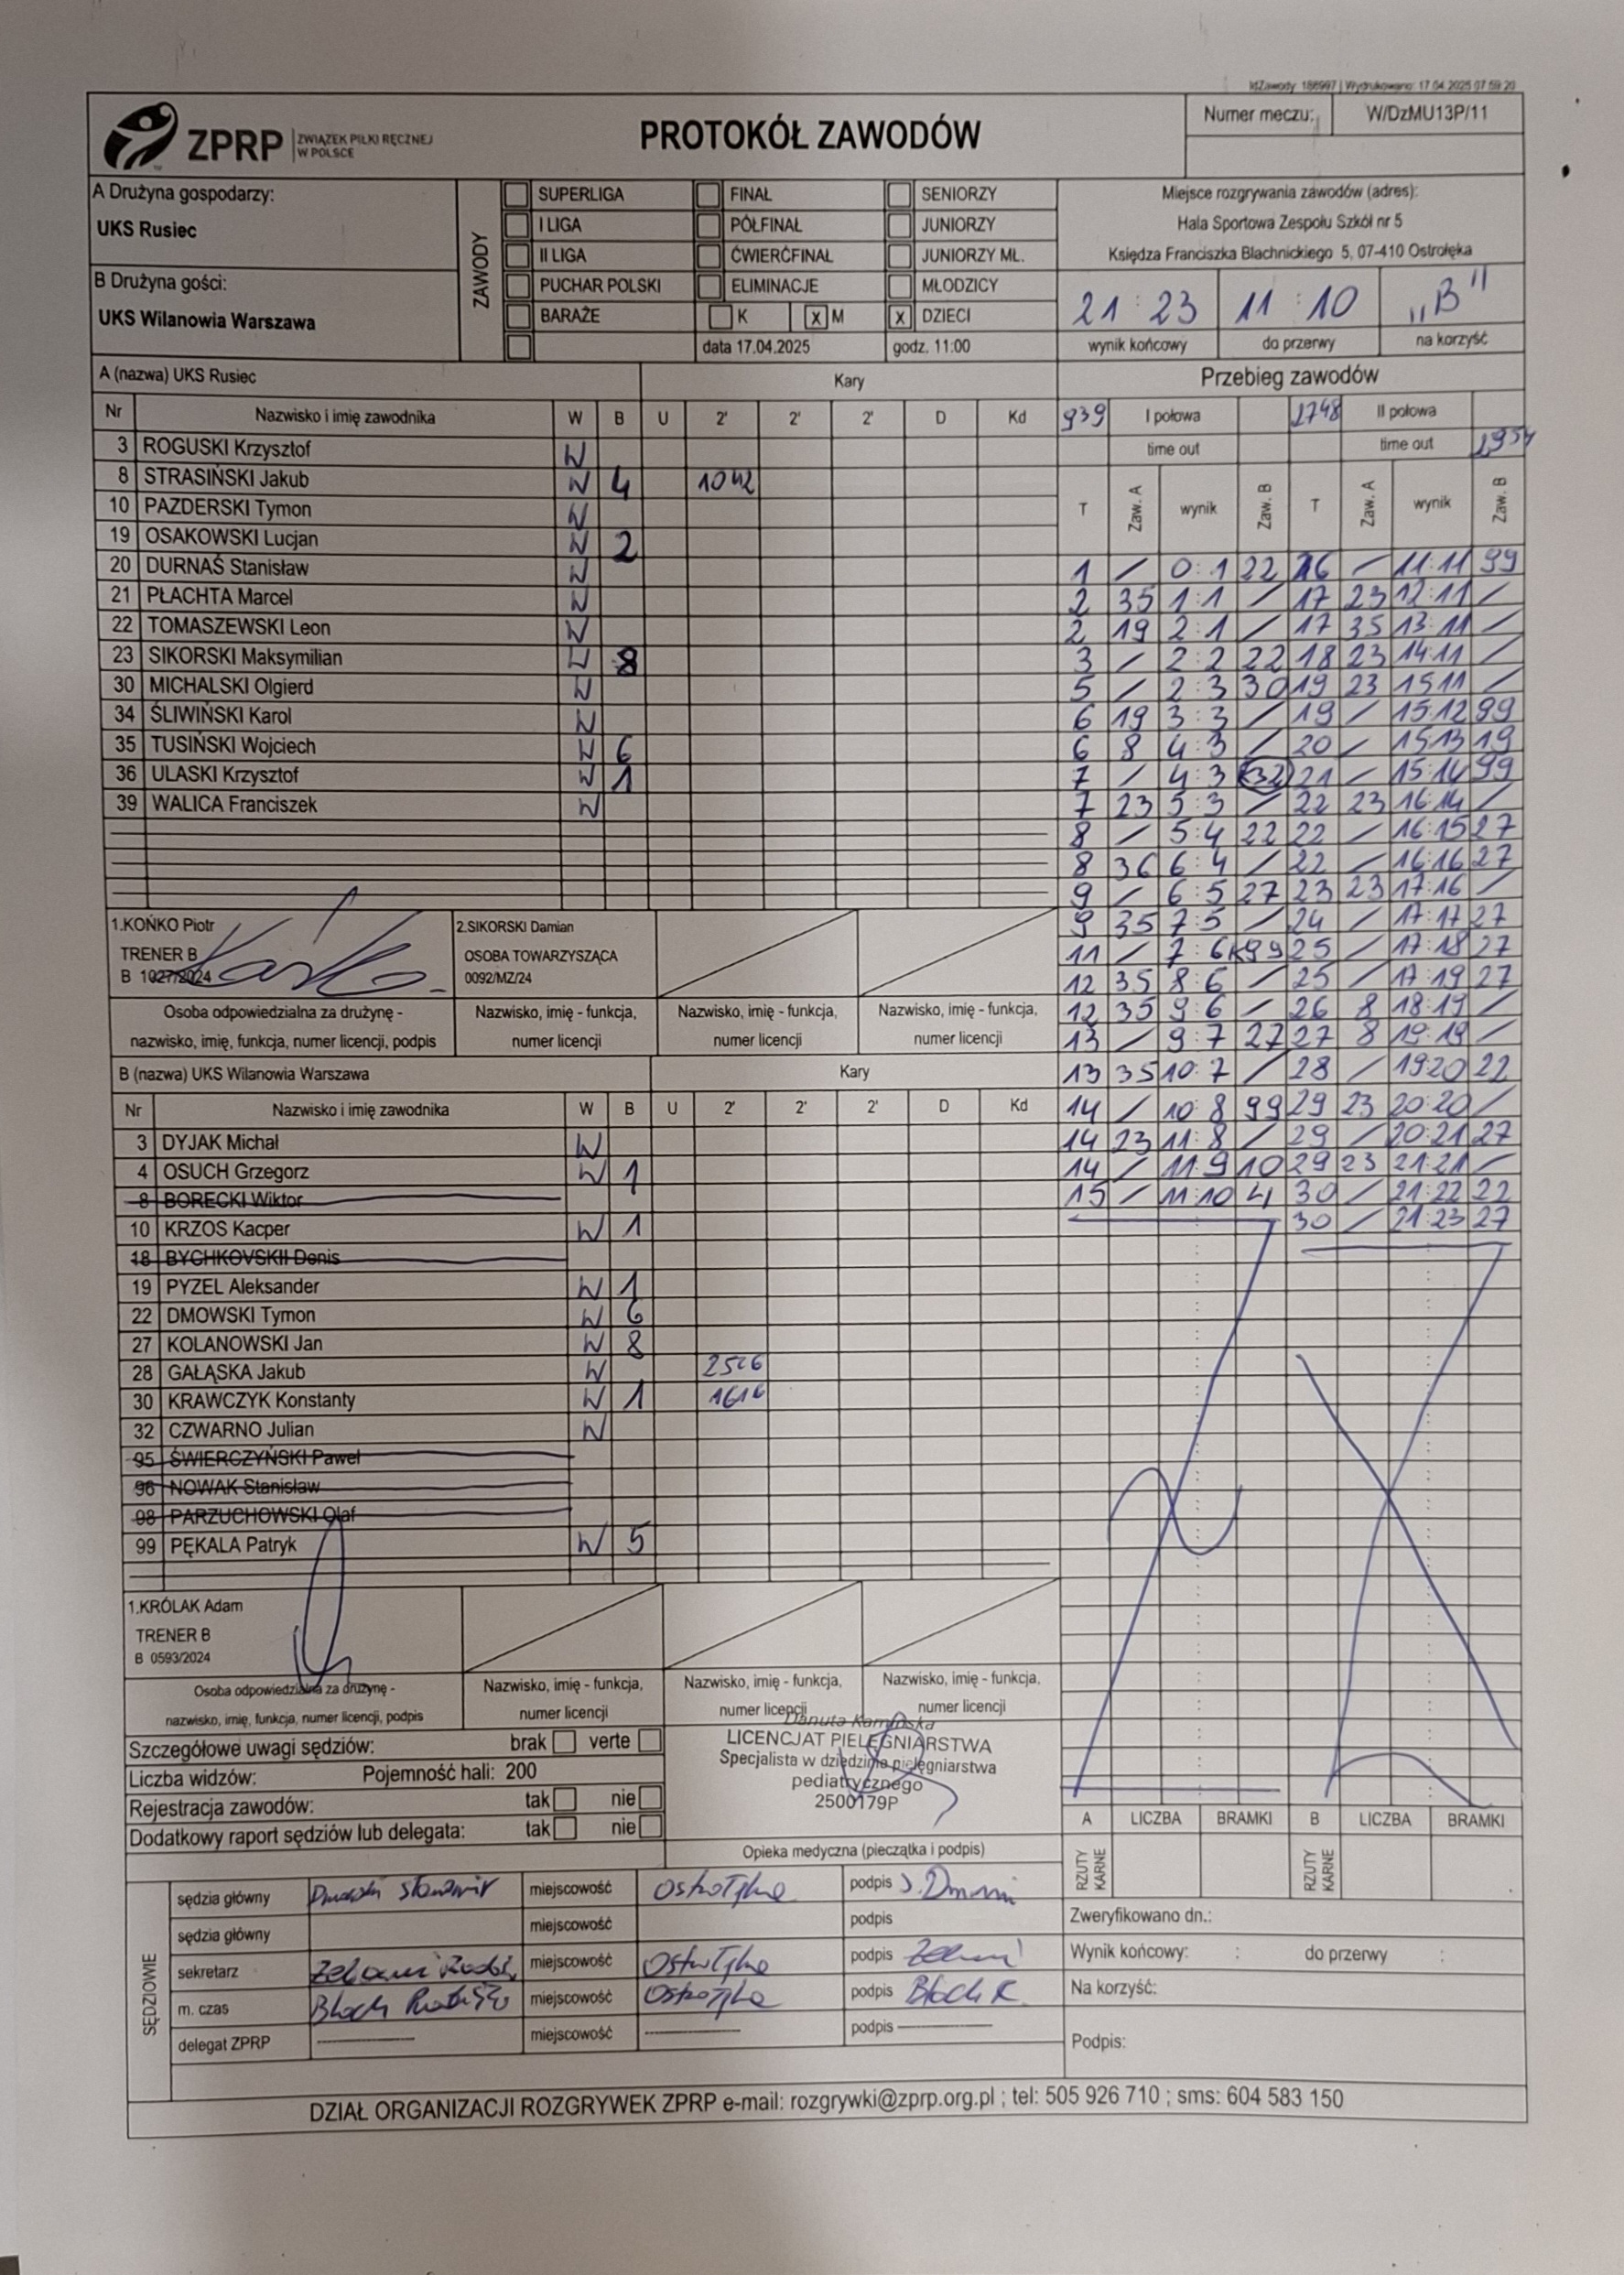 IdZawody: 186997 | Wydrukowano: 17.04.2025 07:59:20
ZPRP ZWIĄZEK PIŁKI RĘCZNEJ W POLSCE
PROTOKÓŁ ZAWODÓW
Numer meczu: W/DzMU13P/11
A Drużyna gospodarzy:
UKS Rusiec
B Drużyna gości:
UKS Wilanowia Warszawa
ZAWODY
SUPERLIGA FINAŁ SENIORZY
I LIGA PÓŁFINAŁ JUNIORZY
II LIGA ĆWIERĆFINAŁ JUNIORZY MŁ.
PUCHAR POLSKI ELIMINACJE MŁODZICY
BARAŻE K X M X DZIECI
data 17.04.2025 godz. 11:00
Miejsce rozgrywania zawodów (adres):
Hala Sportowa Zespołu Szkół nr 5
Księdza Franciszka Blachnickiego 5, 07-410 Ostrołęka
21:23 11:10 „B"
wynik końcowy do przerwy na korzyść
A (nazwa) UKS Rusiec Kary
Nr Nazwisko i imię zawodnika W B U 2' 2' 2' D Kd
3 ROGUSKI Krzysztof W
8 STRASIŃSKI Jakub W 4 1042
10 PAZDERSKI Tymon W
19 OSAKOWSKI Lucjan W 2
20 DURNAŚ Stanisław W
21 PŁACHTA Marcel W
22 TOMASZEWSKI Leon W
23 SIKORSKI Maksymilian W 8
30 MICHALSKI Olgierd W
34 ŚLIWIŃSKI Karol W
35 TUSIŃSKI Wojciech W 6
36 ULASKI Krzysztof W 1
39 WALICA Franciszek W
1.KOŃKO Piotr
TRENER B
B 1027/2024
2.SIKORSKI Damian
OSOBA TOWARZYSZĄCA
0092/MZ/24
Osoba odpowiedzialna za drużynę -
nazwisko, imię, funkcja, numer licencji, podpis
Nazwisko, imię - funkcja,
numer licencji
Nazwisko, imię - funkcja,
numer licencji
Nazwisko, imię - funkcja,
numer licencji
B (nazwa) UKS Wilanowia Warszawa Kary
Nr Nazwisko i imię zawodnika W B U 2' 2' 2' D Kd
3 DYJAK Michał W
4 OSUCH Grzegorz W 1
8 BORECKI Wiktor
10 KRZOS Kacper W 1
18 BYCHKOVSKII Denis
19 PYZEL Aleksander W 1
22 DMOWSKI Tymon W 6
27 KOLANOWSKI Jan W 8
28 GAŁĄSKA Jakub W
30 KRAWCZYK Konstanty W 1 1616
32 CZWARNO Julian W
95 ŚWIERCZYŃSKI Paweł
96 NOWAK Stanisław
98 PARZUCHOWSKI Olaf
99 PĘKALA Patryk W 5
1.KRÓLAK Adam
TRENER B
B 0593/2024
Osoba odpowiedzialna za drużynę -
nazwisko, imię, funkcja, numer licencji, podpis
Nazwisko, imię - funkcja,
numer licencji
Nazwisko, imię - funkcja,
numer licencji
Nazwisko, imię - funkcja,
numer licencji
Przebieg zawodów
939 I połowa 1748 II połowa
time out time out
T Zaw. A wynik Zaw. B T Zaw. A wynik Zaw. B
1 / 0:1 22 16 / 11:11 99
2 35 1:1 / 17 23 12:11 /
2 19 2:1 / 17 35 13:11 /
3 / 2:2 22 18 23 14:11 /
5 / 2:3 30 19 23 15:11 /
6 19 3:3 / 19 / 15:12 99
6 8 4:3 / 20 / 15:13 19
7 / 4:3 K32 21 / 15:14 99
7 23 5:3 / 22 23 16:14 /
8 / 5:4 22 22 / 16:15 27
8 36 6:4 / 22 / 16:16 27
9 / 6:5 27 23 23 17:16 /
9 35 7:5 / 24 / 17:17 27
11 / 7:6 K99 25 / 17:18 27
12 35 8:6 / 25 / 17:19 27
12 35 9:6 / 26 8 18:19 /
13 / 9:7 27 27 8 19:19 /
13 35 10:7 / 28 / 19:20 22
14 / 10:8 99 29 23 20:20 /
14 23 11:8 / 29 / 20:21 27
14 / 11:9 10 29 23 21:21 /
15 / 11:10 4 30 / 21:22 22
30 / 21:23 27
Szczegółowe uwagi sędziów: brak verte
Liczba widzów: Pojemność hali: 200
Rejestracja zawodów: tak nie
Dodatkowy raport sędziów lub delegata: tak nie
Danuta Kamińska
LICENCJAT PIELĘGNIARSTWA
Specjalista w dziedzinie pielęgniarstwa
pediatrycznego
2500179P
Opieka medyczna (pieczątka i podpis)
A LICZBA BRAMKI B LICZBA BRAMKI
RZUTY KARNE RZUTY KARNE
SĘDZIOWIE
sędzia główny miejscowość Ostrołęka podpis
sędzia główny miejscowość podpis
sekretarz miejscowość Ostrołęka podpis
m. czas miejscowość Ostrołęka podpis Błoch R.
delegat ZPRP miejscowość podpis
Zweryfikowano dn.:
Wynik końcowy: : do przerwy :
Na korzyść:
Podpis:
DZIAŁ ORGANIZACJI ROZGRYWEK ZPRP e-mail: rozgrywki@zprp.org.pl ; tel: 505 926 710 ; sms: 604 583 150